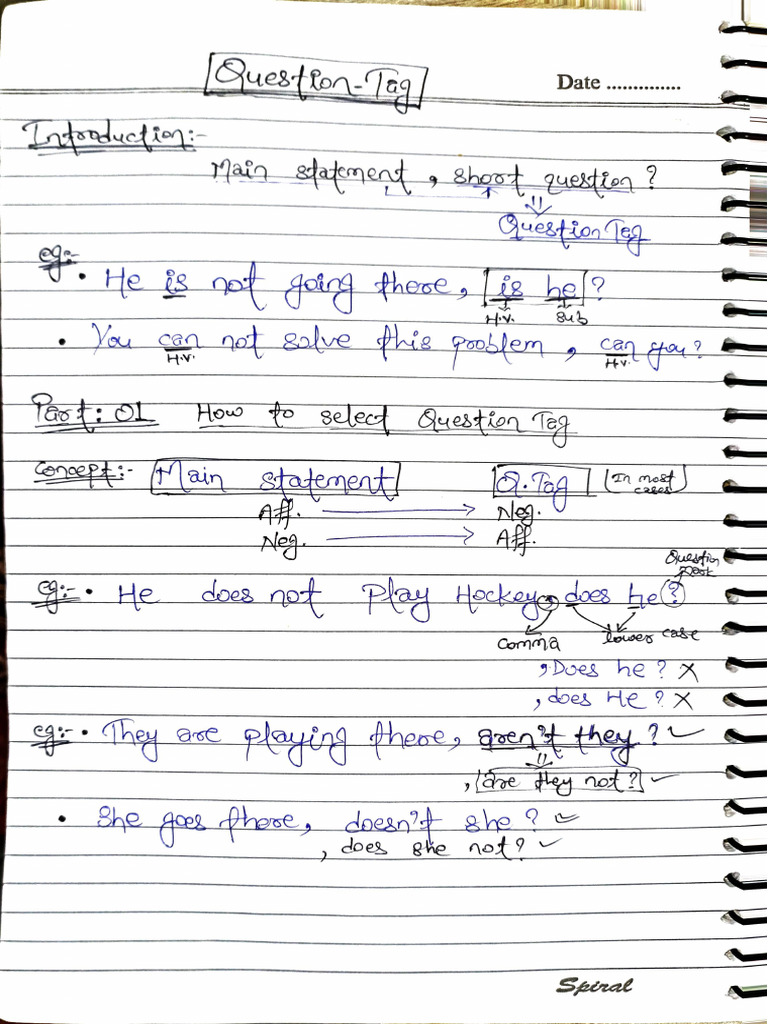 Question-Tag
Date ..............
Introduction:-
Main statement, short question?
Question Tag
eg:- • He is not going there, is he?
H.V. sub
• You can not solve this problem, can you?
H.V. H.V.
Part: 01 How to select Question Tag
Concept:- Main statement Q.Tag (In most cases)
Aff. → Neg.
Neg. → Aff.
Question mark
eg:- • He does not Play Hockey, does he?
comma lower case
, Does he? ×
, does He? ×
eg:- • They are playing there, aren't they? ✓
, are they not? ✓
• She goes there, doesn't she? ✓
, does she not? ✓
Spiral